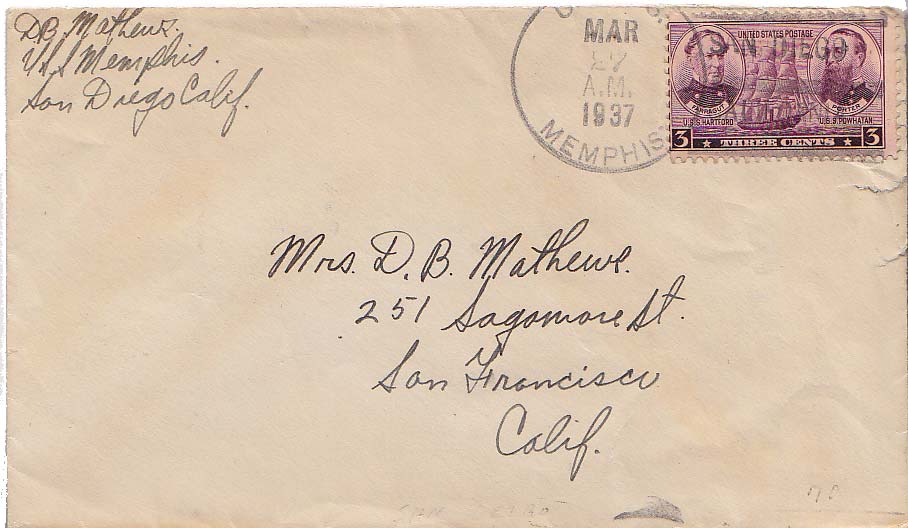 D.B. Mathews.
U.S.S Memphis.
San Diego Calif.
MAR
27
A.M.
1937
MEMPHIS
UNITED STATES POSTAGE
SAN DIEGO
FARRAGUT
PORTER
U.S.S. HARTFORD
U.S.S. POWHATAN
3 ★ THREE CENTS ★ 3
Mrs. D. B. Mathews.
251 Sagamore St.
San Francisco
Calif.